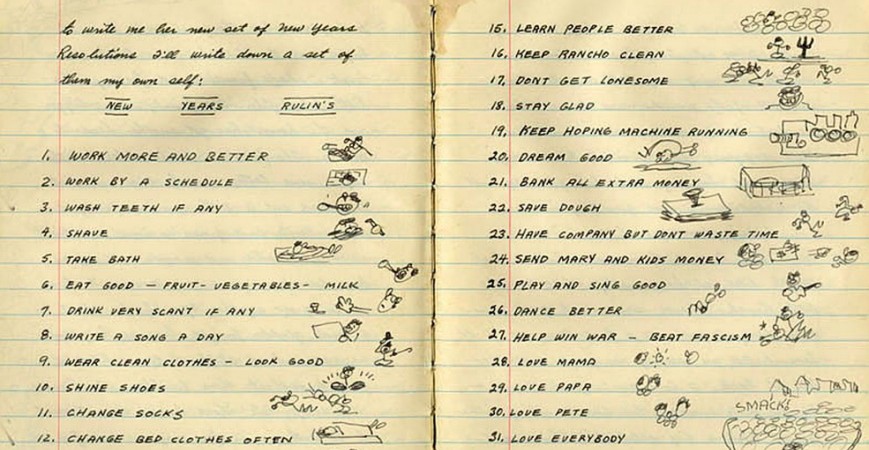 to write me her new set of New Years
Resolutions I'll write down a set of
them my own self:
NEW YEARS RULIN'S
1. WORK MORE AND BETTER
2. WORK BY A SCHEDULE
3. WASH TEETH IF ANY
4. SHAVE
5. TAKE BATH
6. EAT GOOD — FRUIT - VEGETABLES - MILK
7. DRINK VERY SCANT IF ANY
8. WRITE A SONG A DAY
9. WEAR CLEAN CLOTHES — LOOK GOOD
10. SHINE SHOES
11. CHANGE SOCKS
12. CHANGE BED CLOTHES OFTEN
15. LEARN PEOPLE BETTER
16. KEEP RANCHO CLEAN
17. DONT GET LONESOME
18. STAY GLAD
19. KEEP HOPING MACHINE RUNNING
20. DREAM GOOD
21. BANK ALL EXTRA MONEY
22. SAVE DOUGH
23. HAVE COMPANY BUT DONT WASTE TIME
24. SEND MARY AND KIDS MONEY
25. PLAY AND SING GOOD
26. DANCE BETTER
27. HELP WIN WAR — BEAT FASCISM
28. LOVE MAMA
29. LOVE PAPA
30. LOVE PETE
SMACK!
31. LOVE EVERYBODY